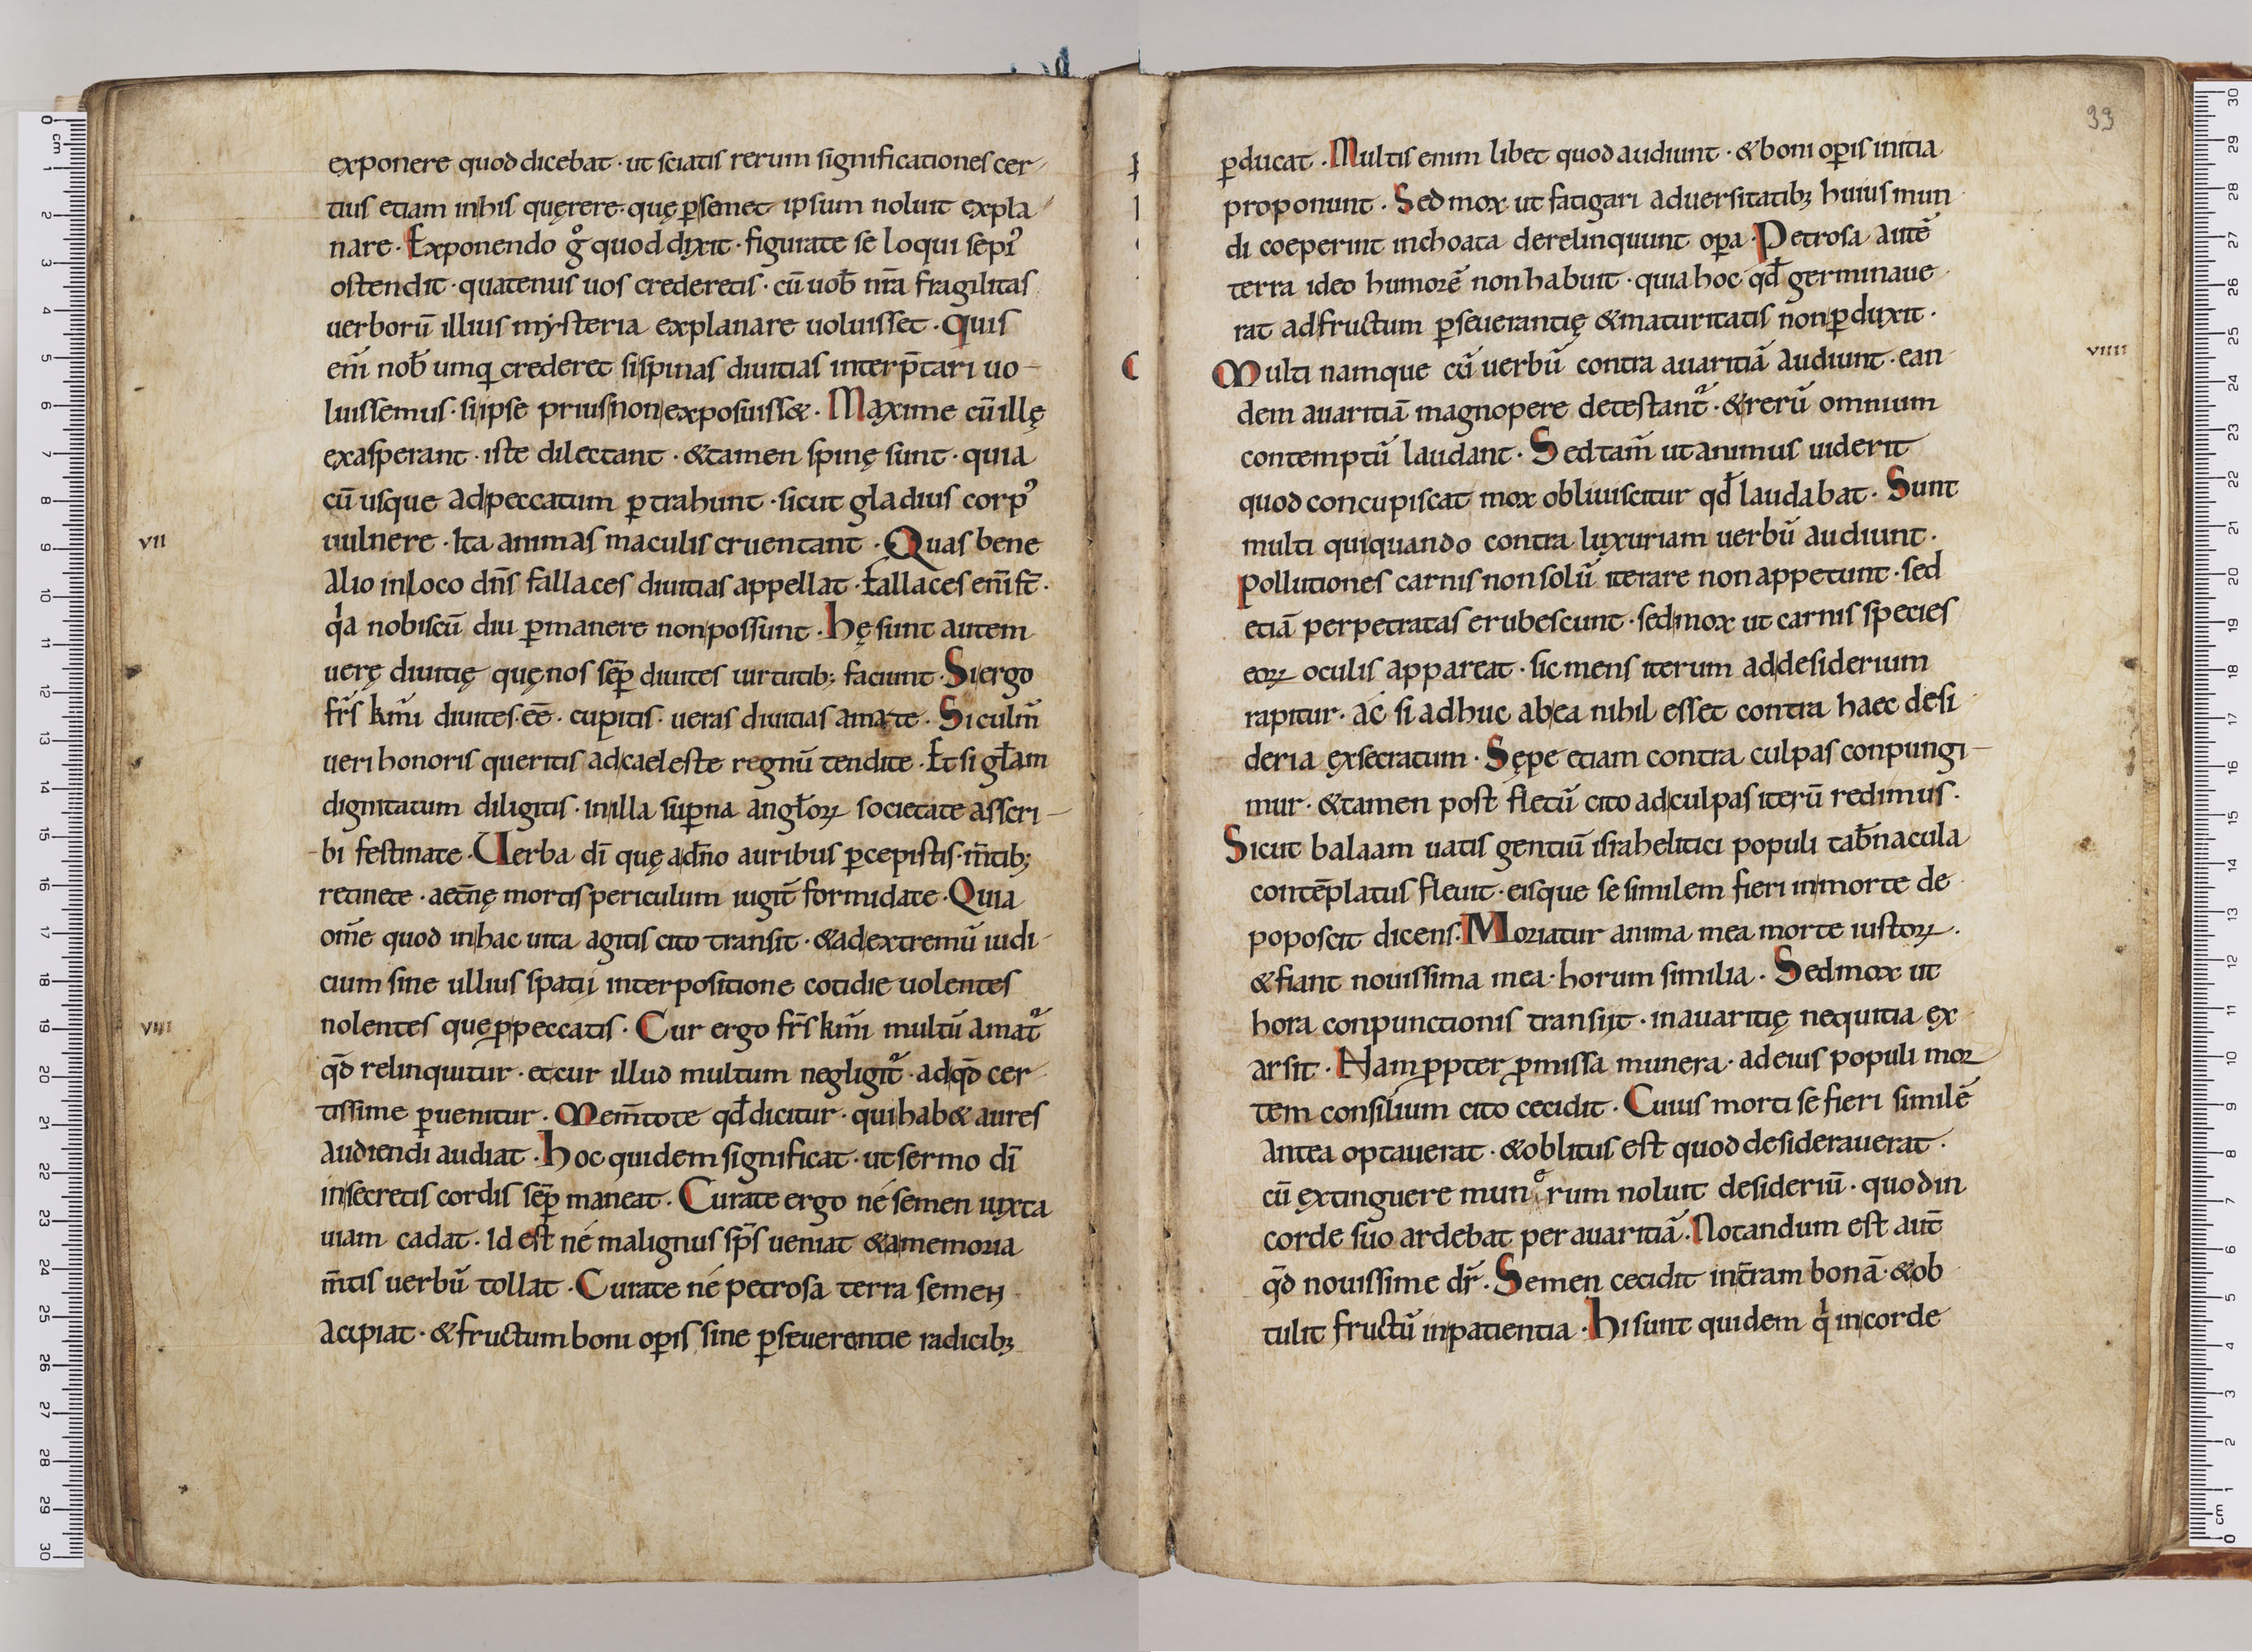 exponere quod dicebat · ut sciatis rerum significationes cer-
tius etiam in his quęrere · quę ꝑ semet ipsum noluit expla-
nare · Exponendo gͦ quod dixit · figurate se loqui sepiꝰ
ostendit · quatenus uos crederetis · cū uob̄ nr̄a fragilitas
uerborū illius mysteria explanare uoluisset · Quis
eni̅ nob̄ umq̄ crederet si spinas diuitias interp̄tari uo-
luissemus · si ipse prius non exposuiss& · Maxime cū illę
exasperant · iste dilectant · & tamen spinę sunt · quia
cū usque ad peccatum ꝑtrahunt · sicut gladius corpꝰ
uulnere · Ita animas maculis cruentant · Quas bene
VII
alio in loco dn̄s fallaces diuitias appellat · Fallaces eni̅ st̄ ·
qͥa nobiscū diu ꝑmanere non possunt · Hę sunt autem
uerę diuitię quę nos sēꝑ diuites uirtutib; faciunt · Si ergo
fr̄s km̄i diuites · ēē · cupitis · ueras diuitias amate · Si culm̄
ueri honoris queritis ad caeleste regnū tendite · Et si gl̄am
dignitatum diligitis · in illa suꝑna angl̄oꝝ societate asscri-
bi festinate · Uerba dī quę ad̄no auribus ꝑcepistis · m̄tib;
retinete · aet̄nę mortis periculum iugit̄ formidate · Quia
om̄e quod in hac uita agitis cito transit · & ad extremū iudi-
cium sine ullius spatij interpositione cotidie uolentes
nolentes que ꝓpeccatis · Cur ergo fr̄s km̄i multū amat᷑
VIII
qd̄ relinquitur · et cur illud multum negligit᷑ · ad qd̄ cer-
tissime ꝑuenitur · Mem̄tote qđ dicitur · qui hab& aures
audiendi audiat · Hoc quidem significat · ut sermo dī
in secretis cordis sēꝑ maneat · Curate ergo né semen iuxta
uiam cadat · Id est né malignus sp̄s ueniat & a memoria
m̄tis uerbū tollat · Curate né petrosa terra semen
accipiat · & fructum boni oꝑis sine ꝑseuerentie radicib;
33
ꝑducat · Multis enim libet quod audiunt · & boni oꝑis initia
proponunt · Sed mox ut fatigari aduersitatib; huius mun-
di coeperint inchoata derelinquunt oꝑa · Petrosa autē
terra ideo humorē non habuit · quia hoc qđ germinaue-
rat ad fructum ꝑseuerantię & maturitatis non ꝑduxit ·
Multi namque cū uerbū contra auaritiā audiunt · ean-
VIIII
dem auaritiā magnopere detestant᷑ · & rerū omnium
contemptū laudant · Sed tam̄ ut animus uiderit
quod concupiscat mox obliuiscitur qđ laudabat · Sunt
multi qui quando contra luxuriam uerbū audiunt ·
pollutiones carnis non solū iterare non appetunt · sed
etiā perpetratas erubescunt · sed mox ut carnis species
eoꝝ oculis appareat · sic mens iterum ad desiderium
rapitur · ác si adhuc ab ea nihil esset contra haec desi-
deria exsecratum · Sępe etiam contra culpas conpungi-
mur · & tamen post fletū cito ad culpas iterū redimus ·
Sicut balaam uatis gentiū israhelitici populi tab̄nacula
contēplatus fleuit · eisque se similem fieri in morte de-
poposcit dicens · Moriatur anima mea morte iustoꝝ ·
& fiant nouissima mea · horum similia · Sed mox ut
hora conpunctionis transijt · in auaritię nequitia ex-
arsit · Nam ꝓpter ꝓmissa munera · ad eius populi mor-
tem consilium cito cecidit · Cuius morti se fieri similē
antea optauerat · & oblitus est quod desiderauerat ·
cū extinguere munͤrum noluit desideriū · quod in
corde suo ardebat per auaritiā · Notandum est aut̄
qd̄ nouissime dr̄ · Semen cecidit in t̄ram bonā · & ob-
tulit fructū in patientia · Hi sunt quidem qͥ in corde